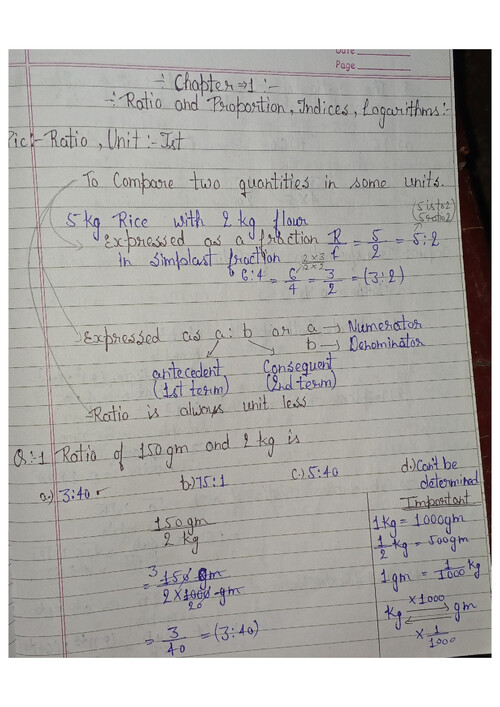 Date
Page
÷ Chapter ⇒ 1 :-
÷ Ratio and Proportion, Indices, Logarithms:-
pic:- Ratio, Unit :- Ist
To Compare two quantities in some units.
5 kg Rice with 2 kg flour
(5 is to 2)
(5 ratio 2)
Expressed as a fraction R/f = 5/2 = 5:2
in simplast fraction
6:4 = 6/4 = 3/2 = (3:2)
2×3
2×2
Expressed as a:b or a → Numerator
b → Denominator
antecedent (1st term)
Consequent (2nd term)
Ratio is always unit less
Q:1 Ratio of 150 gm and 2 kg is
a.) 3:40
b.) 75:1
c.) 5:40
d.) Can't be determined
150 gm / 2 kg
= 3 150 gm / 2 × 1000 gm 20
= 3/40 = (3:40)
Important
1 kg = 1000 gm
1/2 kg = 500 gm
1 gm = 1/1000 kg
× 1000
kg gm
× 1/1000